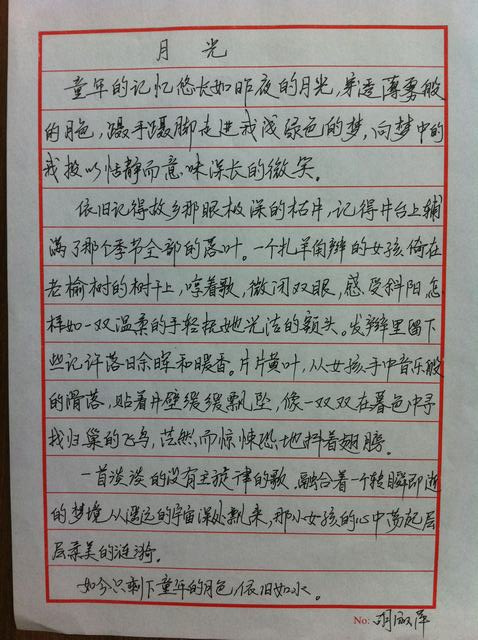 月光
童年的记忆悠长如昨夜的月光，穿透薄雾般
的月色，蹑手蹑脚走进我浅绿色的梦，向梦中的
我投以恬静而意味深长的微笑。
依旧记得故乡那眼极深的枯井，记得井台上铺
满了那个季节全部的落叶。一个扎羊角辫的女孩倚在
老榆树的树干上，哼着歌，微闭双眼，感受斜阳怎
样如一双温柔的手轻抚她光洁的额头。发辫里留下
些记许落日余晖和暖香。片片黄叶，从女孩手中音乐般
的滑落，贴着井壁缓缓飘坠，像一双双在暮色中寻
找归巢的飞鸟，茫然而惊悚恐地抖着翅膀。
一首淡淡的没有主旋律的歌，融合着一个转瞬即逝
的梦境从遥远的宇宙深处飘来，那小女孩的心中荡起层
层柔美的涟漪。
如今只剩下童年的月色，依旧如水。
No: 胡淑萍